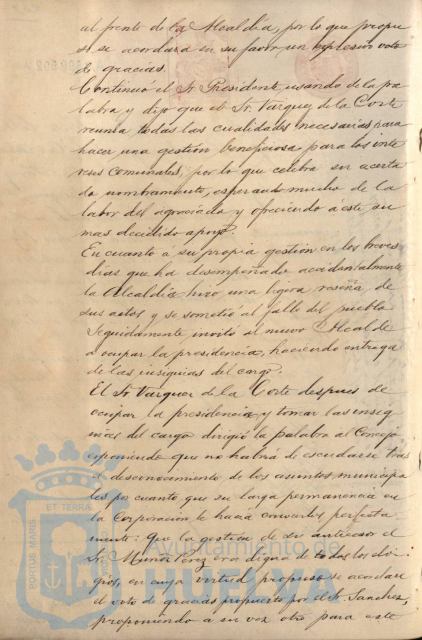 al frente de la Alcaldía, por lo que propu
so se acordara en su favor un expresivo voto
de gracias.
Continuó el Sr. Presidente usando de la pa
labra y dijo que el Sr. Vazquez de la Corte
reunia todas las cualidades necesarias para
hacer una gestión beneficiosa para los inte
reses comunales, por lo que celebra su acerta
do nombramiento, esperando mucho de la
labor del agraciado y ofreciendo á éste su
mas decidido apoyo.
En cuanto á su propia gestión en los breves
dias que ha desempeñado accidentalmente
la Alcaldía hizo una ligera reseña de
sus actos y se sometió al fallo del pueblo
Seguidamente invitó al nuevo Alcalde
a ocupar la presidencia, haciendo entrega
de las insignias del cargo.
El Sr. Vazquez de la Corte despues de
ocupar la presidencia y tomar las insig
nias del cargo dirigió la palabra al Concejo
exponiendo que no habrá de escudarse tras
el desconocimiento de los asuntos municipa
les por cuanto que su larga permanencia en
la Corporación le hacía conocerlos perfecta
mente: Que la gestión de su antecesor el
Sr. Muñoz Perez era digna de todos los elo
gios, en cuya virtud propuso se acordara
el voto de gracias propuesto por el Sr. Sanchez,
proponiendo a su vez otro para este
Ayuntamiento de
HUELVA
PORTUS MARIS
ET TERRAE